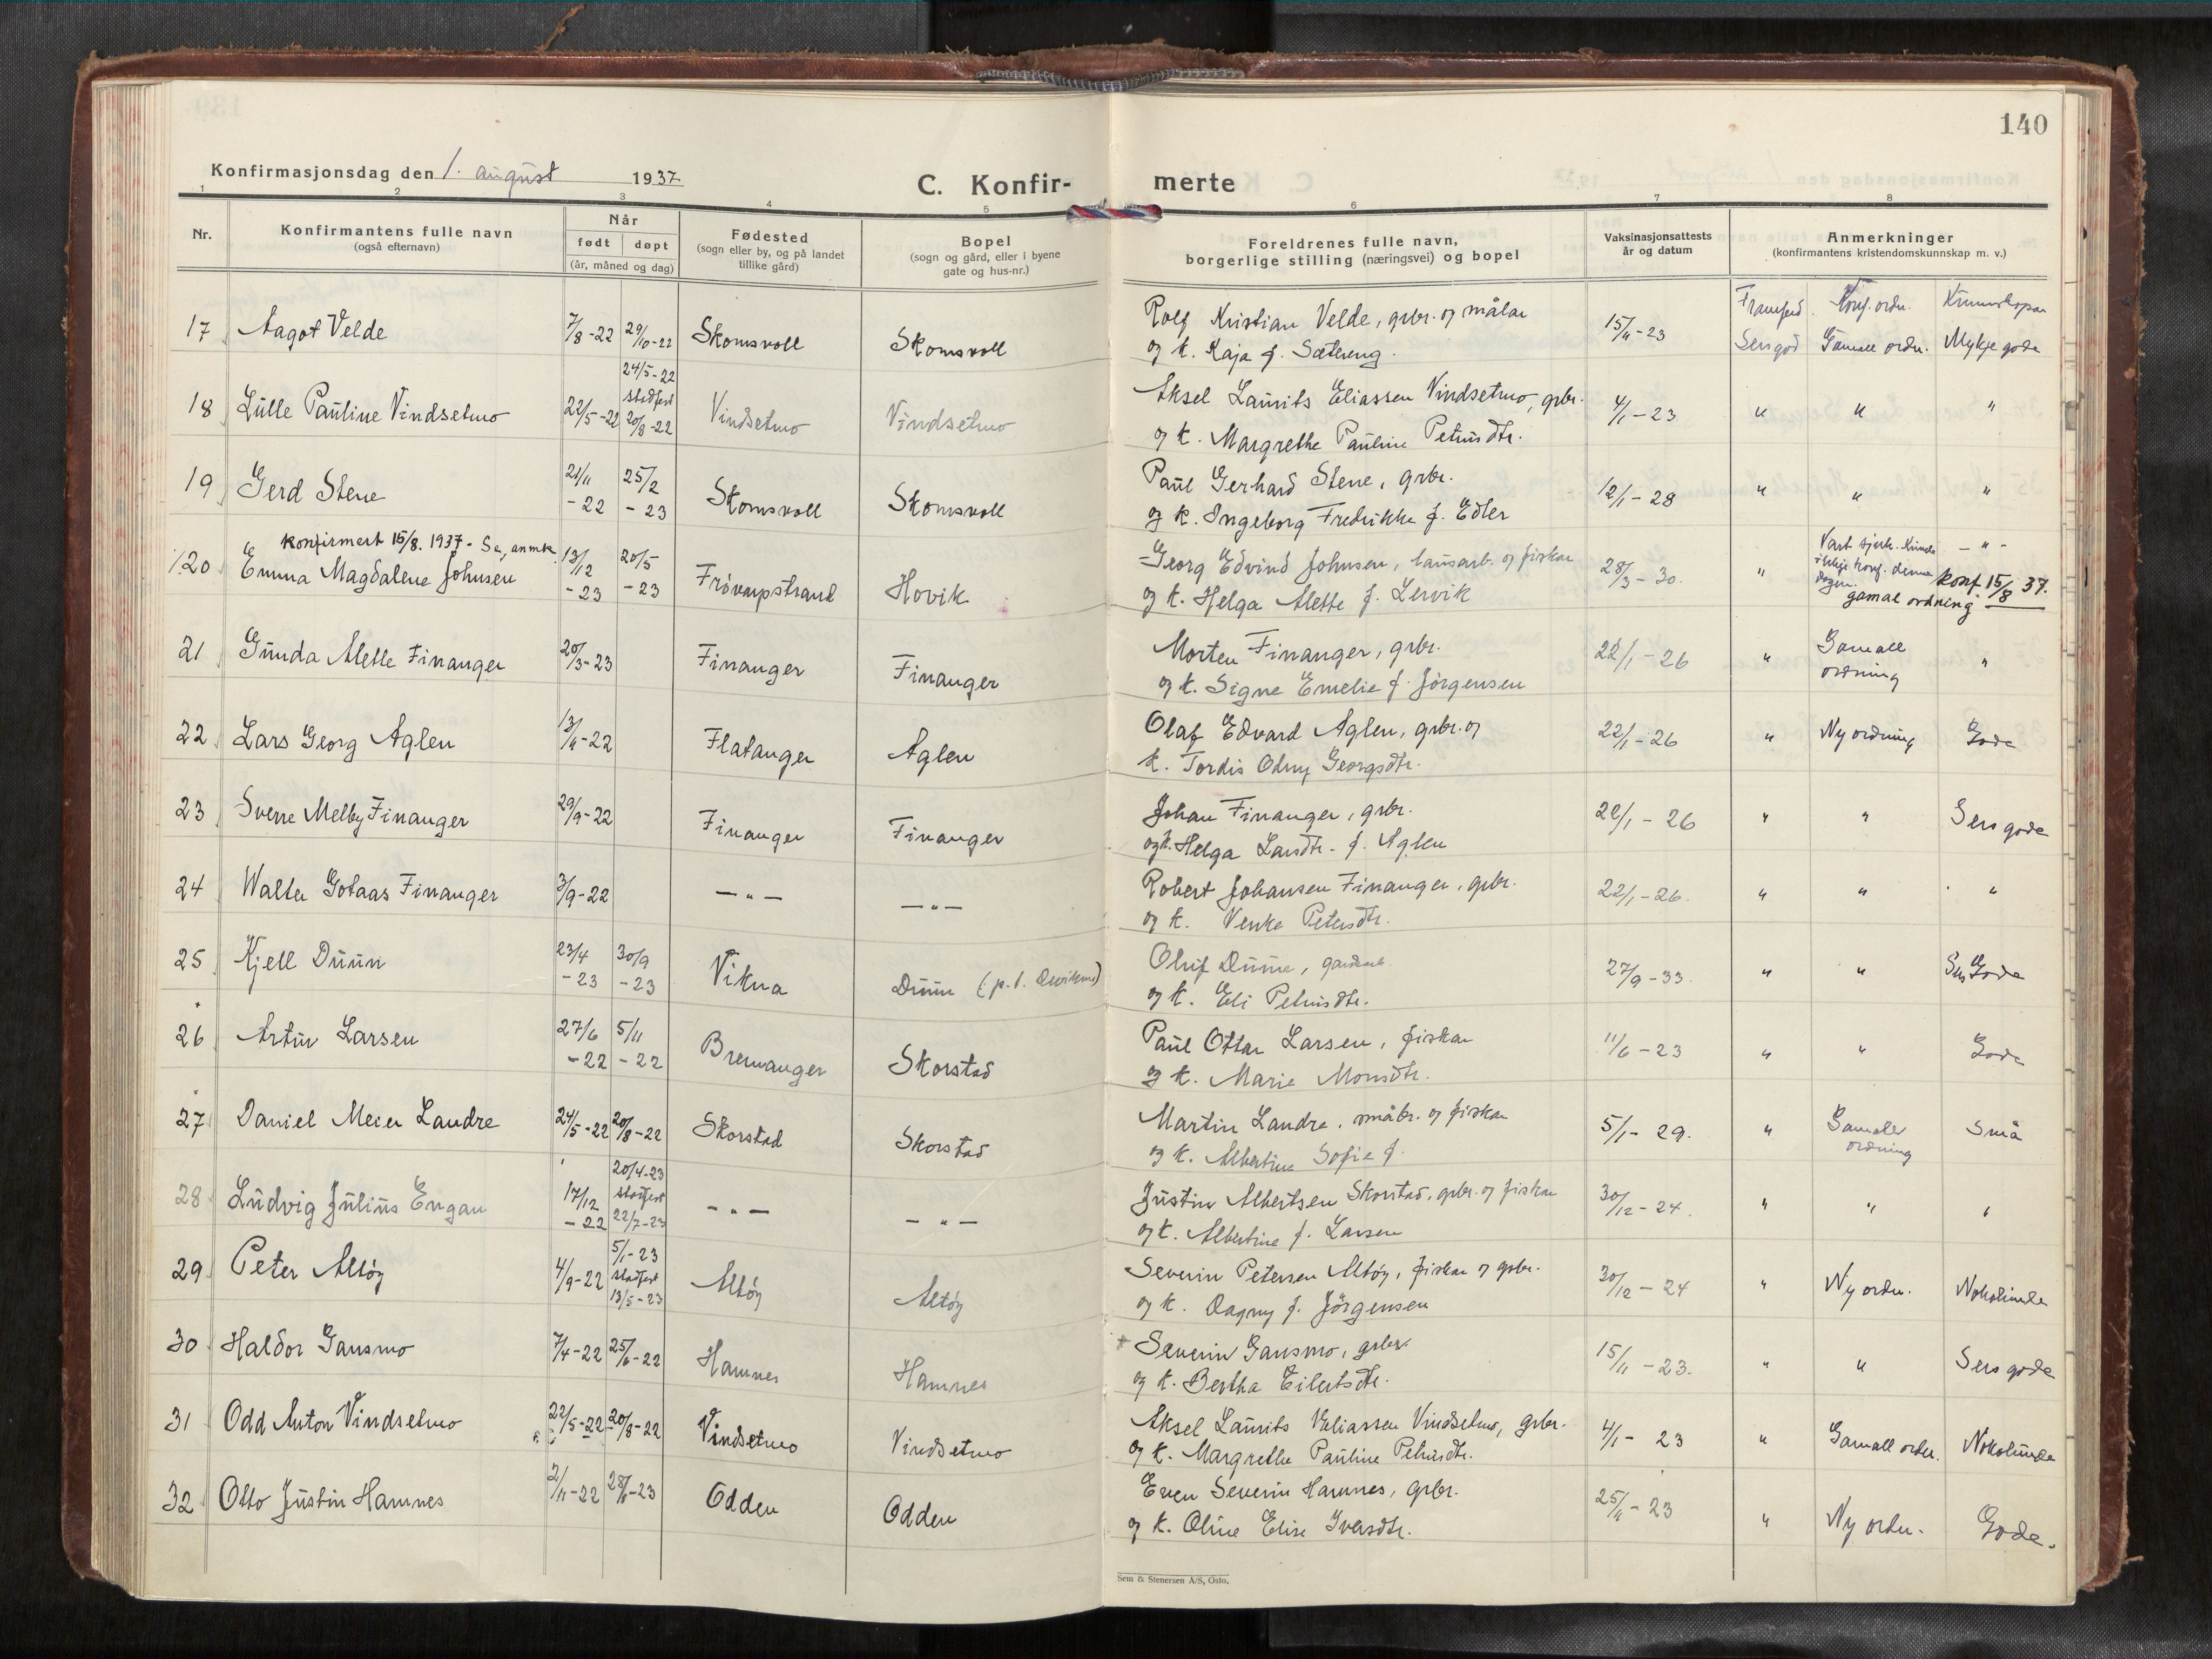 140
Konfirmasjonsdag den 1. august 1937
C. Konfir- merte
1 2 3 4 5 6 7 8
Nr.
Konfirmantens fulle navn
(også efternavn)
Når
født døpt
(år, måned og dag)
Fødested
(sogn eller by, og på landet
tillike gård)
Bopel
(sogn og gård, eller i byene
gate og hus-nr.)
Foreldrenes fulle navn,
borgerlige stilling (næringsvei) og bopel
Vaksinasjonsattests
år og datum
Anmerkninger
(konfirmantens kristendomskunnskap m. v.)
Framferd Konf. ordn. Kunnskapar
17 Aagot Velde 7/8-22 29/10-22 Skomsvoll Skomsvoll Rolf Kristian Velde, grbr. og målar 15/11-23 Sers god Gamall ordn. Mykje gode
og k. Kaja f. Sætereng.
24/5-22
stadfest
18 Lulle Pauline Vindsetmo 22/5-22 20/8-22 Vindsetmo Vindsetmo Aksel Laurits Eliassen Vindsetmo, grbr. 4/1-23 " " "
og k. Margrethe Pauline Petrusdtr.
19 Gerd Stene 21/11 -22 25/2 -23 Skomsvoll Skomsvoll Paul Gerhard Stene, grbr. 12/1-28 " " "
og k. Ingeborg Fredrikke f. Edler
konfirmert 15/8. 1937 - Se, anmk.
20 Emma Magdalene Johnsen 13/12 -23 20/5 -23 Hovik Georg Edvind Johnsen, lausarb. og fiskar 28/3-30. " Vart sjuk. Kunde - " -
og k. Helga Alette f. Lervik
ikkje konf. denne
dagen. konf 15/8 37.
gamal ordning
21 Gunda Alette Finanger 20/3-23 Finanger Finanger Morten Finanger, grbr. 22/1-26 " Gamall ordning "
og k. Signe Emelie f. Jørgensen
22 Lars Georg Aglen 13/11-22 Flatanger Aglen Olaf Edvard Aglen, grbr. og 22/1-26 " Ny ordning Gode
k. Tordis Odny Georgsdtr.
23 Sverre Melby Finanger 29/9-22 Finanger Finanger Johan Finanger, grbr. 22/1-26 " " Sers gode
og k. Helga Larsdtr. f. Aglen
24 Walter Gotaas Finanger 3/9-22 - " - - " - Robert Johansen Finanger, grbr. 22/1-26. " " "
og k. Venke Petersdtr.
25 Kjell Duun 23/4 -23 30/9 -23 Vikna Duun Oluf Duun, gardarb. 27/9-33 " " Sers Gode
og k. Eli Petrusdtr.
26 Artur Larsen 27/6 -22 5/11 -22 Bremanger Skorstad Paul Ottar Larsen, fiskar 11/6-23 " " Gode
og k. Marie Monsdtr.
27 Daniel Meier Landre 24/5-22 20/8-22 Skorstad Skorstad Martin Landre, småbr. og fiskar 5/1-29. " Gamall ordning Små
og k. Albertine Sofie f.
20/4-23
stadfest
28 Ludvig Julius Engan 17/12 -22 22/7-23 - " - - " - Justin Albertsen Skorstad, grbr. og fiskar 30/12-24. " " "
og k. Albertine f. Larsen
5/1-23
stadfest
29 Peter Altøy 4/9-22 13/5-23 Altøy Altøy Severin Petersen Altøy, fiskar og grbr. 30/12-24 " Ny ordn. Nokolunde
og k. Dagny f. Jörgensen
30 Haldor Gansmo 7/4-22 25/6-22 Hamnes Hamnes + Severin Gansmo, grbr. 15/11-23. " " Sers gode
og k. Bertha Eilertsdtr.
31 Odd Anton Vindsetmo 22/5-22 20/8-22 Vindsetmo Vindsetmo Aksel Laurits Eliassen Vindsetmo, grbr. 4/1-23 " Gamall ordn. Nokolunde
og k. Margrethe Pauline Petrusdtr.
32 Otto Justin Hamnes 2/11-22 28/1-23 Odden Odden Even Severin Hamnes, grbr. 25/11-23 " Ny ordn. Gode.
og k. Oline Elise Iversdtr.
Sem & Stenersen A/S, Oslo.